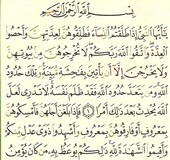 بِسْمِ اللَّهِ الرَّحْمَٰنِ الرَّحِيمِ
يَا أَيُّهَا النَّبِيُّ إِذَا طَلَّقْتُمُ النِّسَاءَ فَطَلِّقُوهُنَّ لِعِدَّتِهِنَّ وَأَحْصُوا
الْعِدَّةَ وَاتَّقُوا اللَّهَ رَبَّكُمْ لَا تُخْرِجُوهُنَّ مِنْ بُيُوتِهِنَّ
وَلَا يَخْرُجْنَ إِلَّا أَنْ يَأْتِينَ بِفَاحِشَةٍ مُبَيِّنَةٍ وَتِلْكَ حُدُودُ
اللَّهِ وَمَنْ يَتَعَدَّ حُدُودَ اللَّهِ فَقَدْ ظَلَمَ نَفْسَهُ لَا تَدْرِي لَعَلَّ
اللَّهَ يُحْدِثُ بَعْدَ ذَٰلِكَ أَمْرًا ١ فَإِذَا بَلَغْنَ أَجَلَهُنَّ فَأَمْسِكُوهُنَّ
بِمَعْرُوفٍ أَوْ فَارِقُوهُنَّ بِمَعْرُوفٍ وَأَشْهِدُوا ذَوَيْ عَدْلٍ مِنْكُمْ
وَأَقِيمُوا الشَّهَادَةَ لِلَّهِ ذَٰلِكُمْ يُوعَظُ بِهِ مَنْ كَانَ يُؤْمِنُ